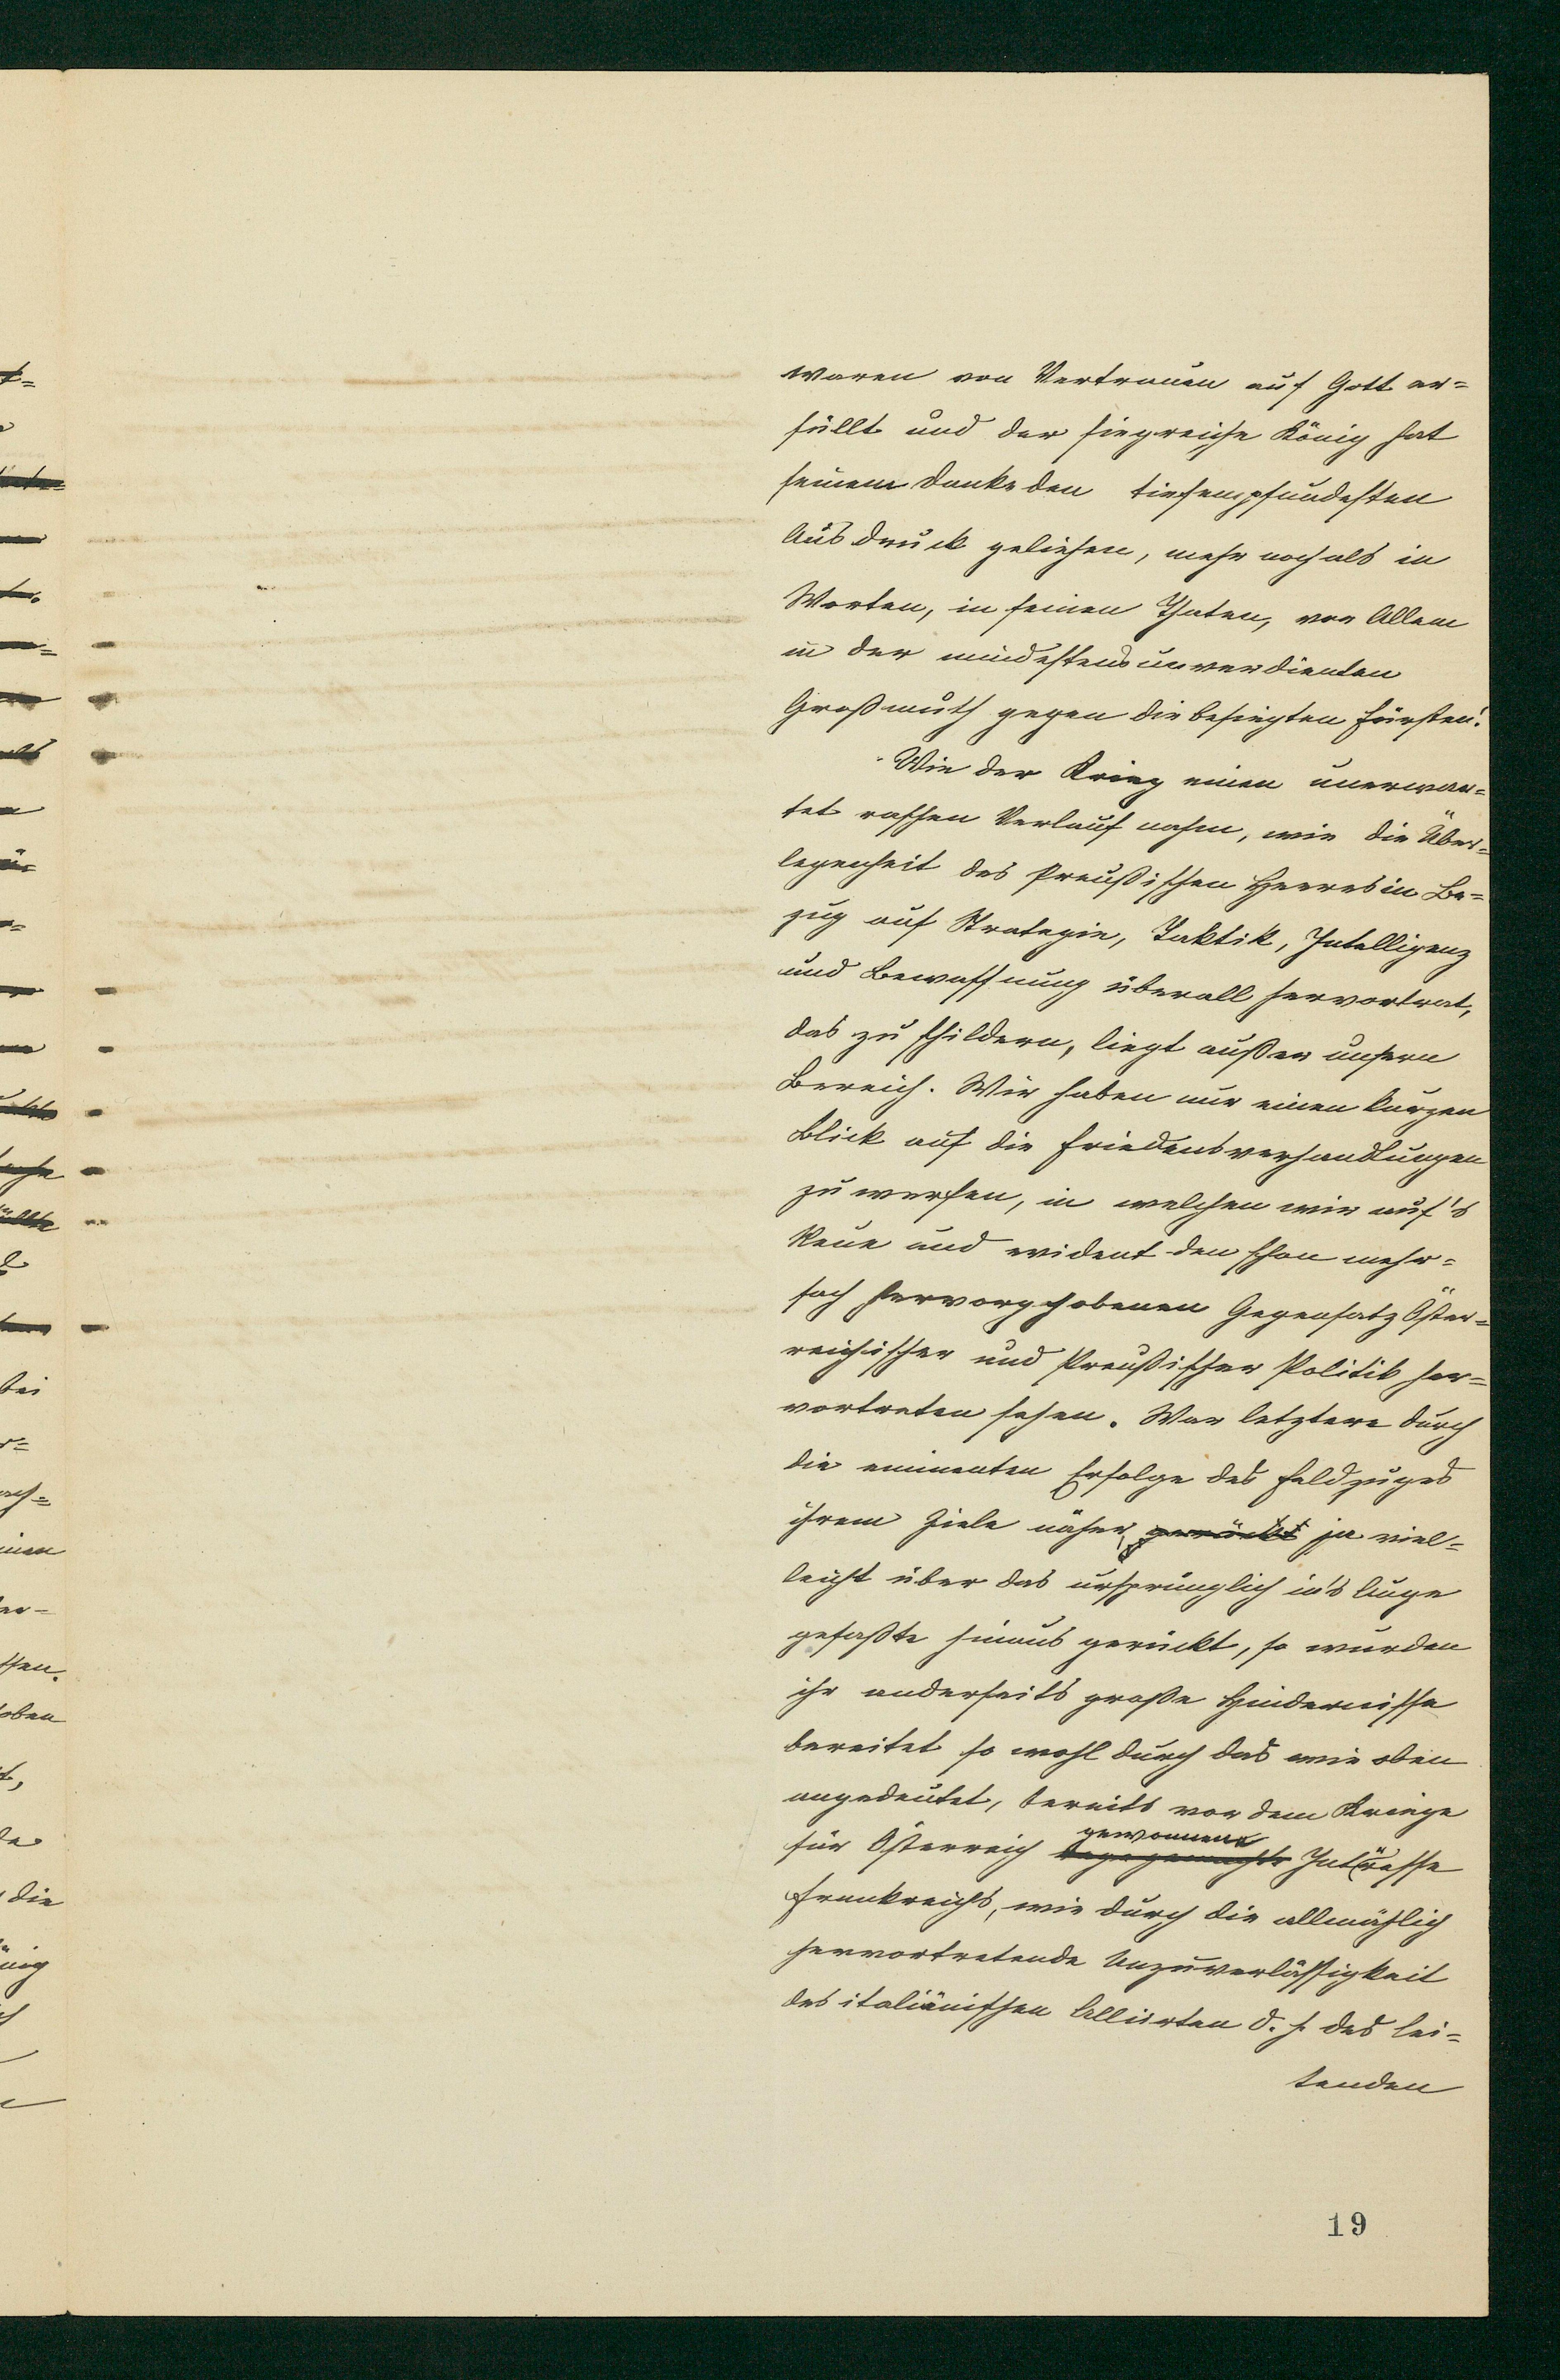 waren von Vertrauen auf Gott er=
füllt und der siegreiche König hat
seinem Danke den tiefempfundesten
Ausdruck geliehen, mehr noch als in
Worten, in seinen Thaten, vor Allem
in der mindestens unverdienten
Großmuth gegen die besiegten Fürsten!
Wie der Krieg einen unerwar=
tet raschen Verlauf nahm, wie die Über=
legenheit des Preußischen Heeres in Be=
zug auf Strategie, Taktik, Intelligenz
und Bewaffnung überall hervortrat,
das zu schildern, liegt außer unsern
Bereich. Wir haben nur einen kurzen
Blick auf die Friedensverhandlungen
zu werfen, in welchen wir auf's
Neue und evident den schon mehr=
fach hervorgehobenen Gegensatz Öster=
reichischer und Preußischer Politik her=
vortreten sehen. War letztere durch
die eminenten Erfolge des Feldzuges
ihrem Ziele näher, gerückt ja viel=
leicht über das ursprünglich in's Auge
gefaßte hinaus gerückt, so wurden
ihr anderseits große Hindernisse
bereitet so wohl durch das wie oben
angedeutet, bereits vor dem Kriege
gewonnene
für Österreich Intresse
Frankreichs, wie durch die allmählich
hervortretende Unzuverlässigkeit
des italiänischen Alliirten d. h. des lei=
tenden
19